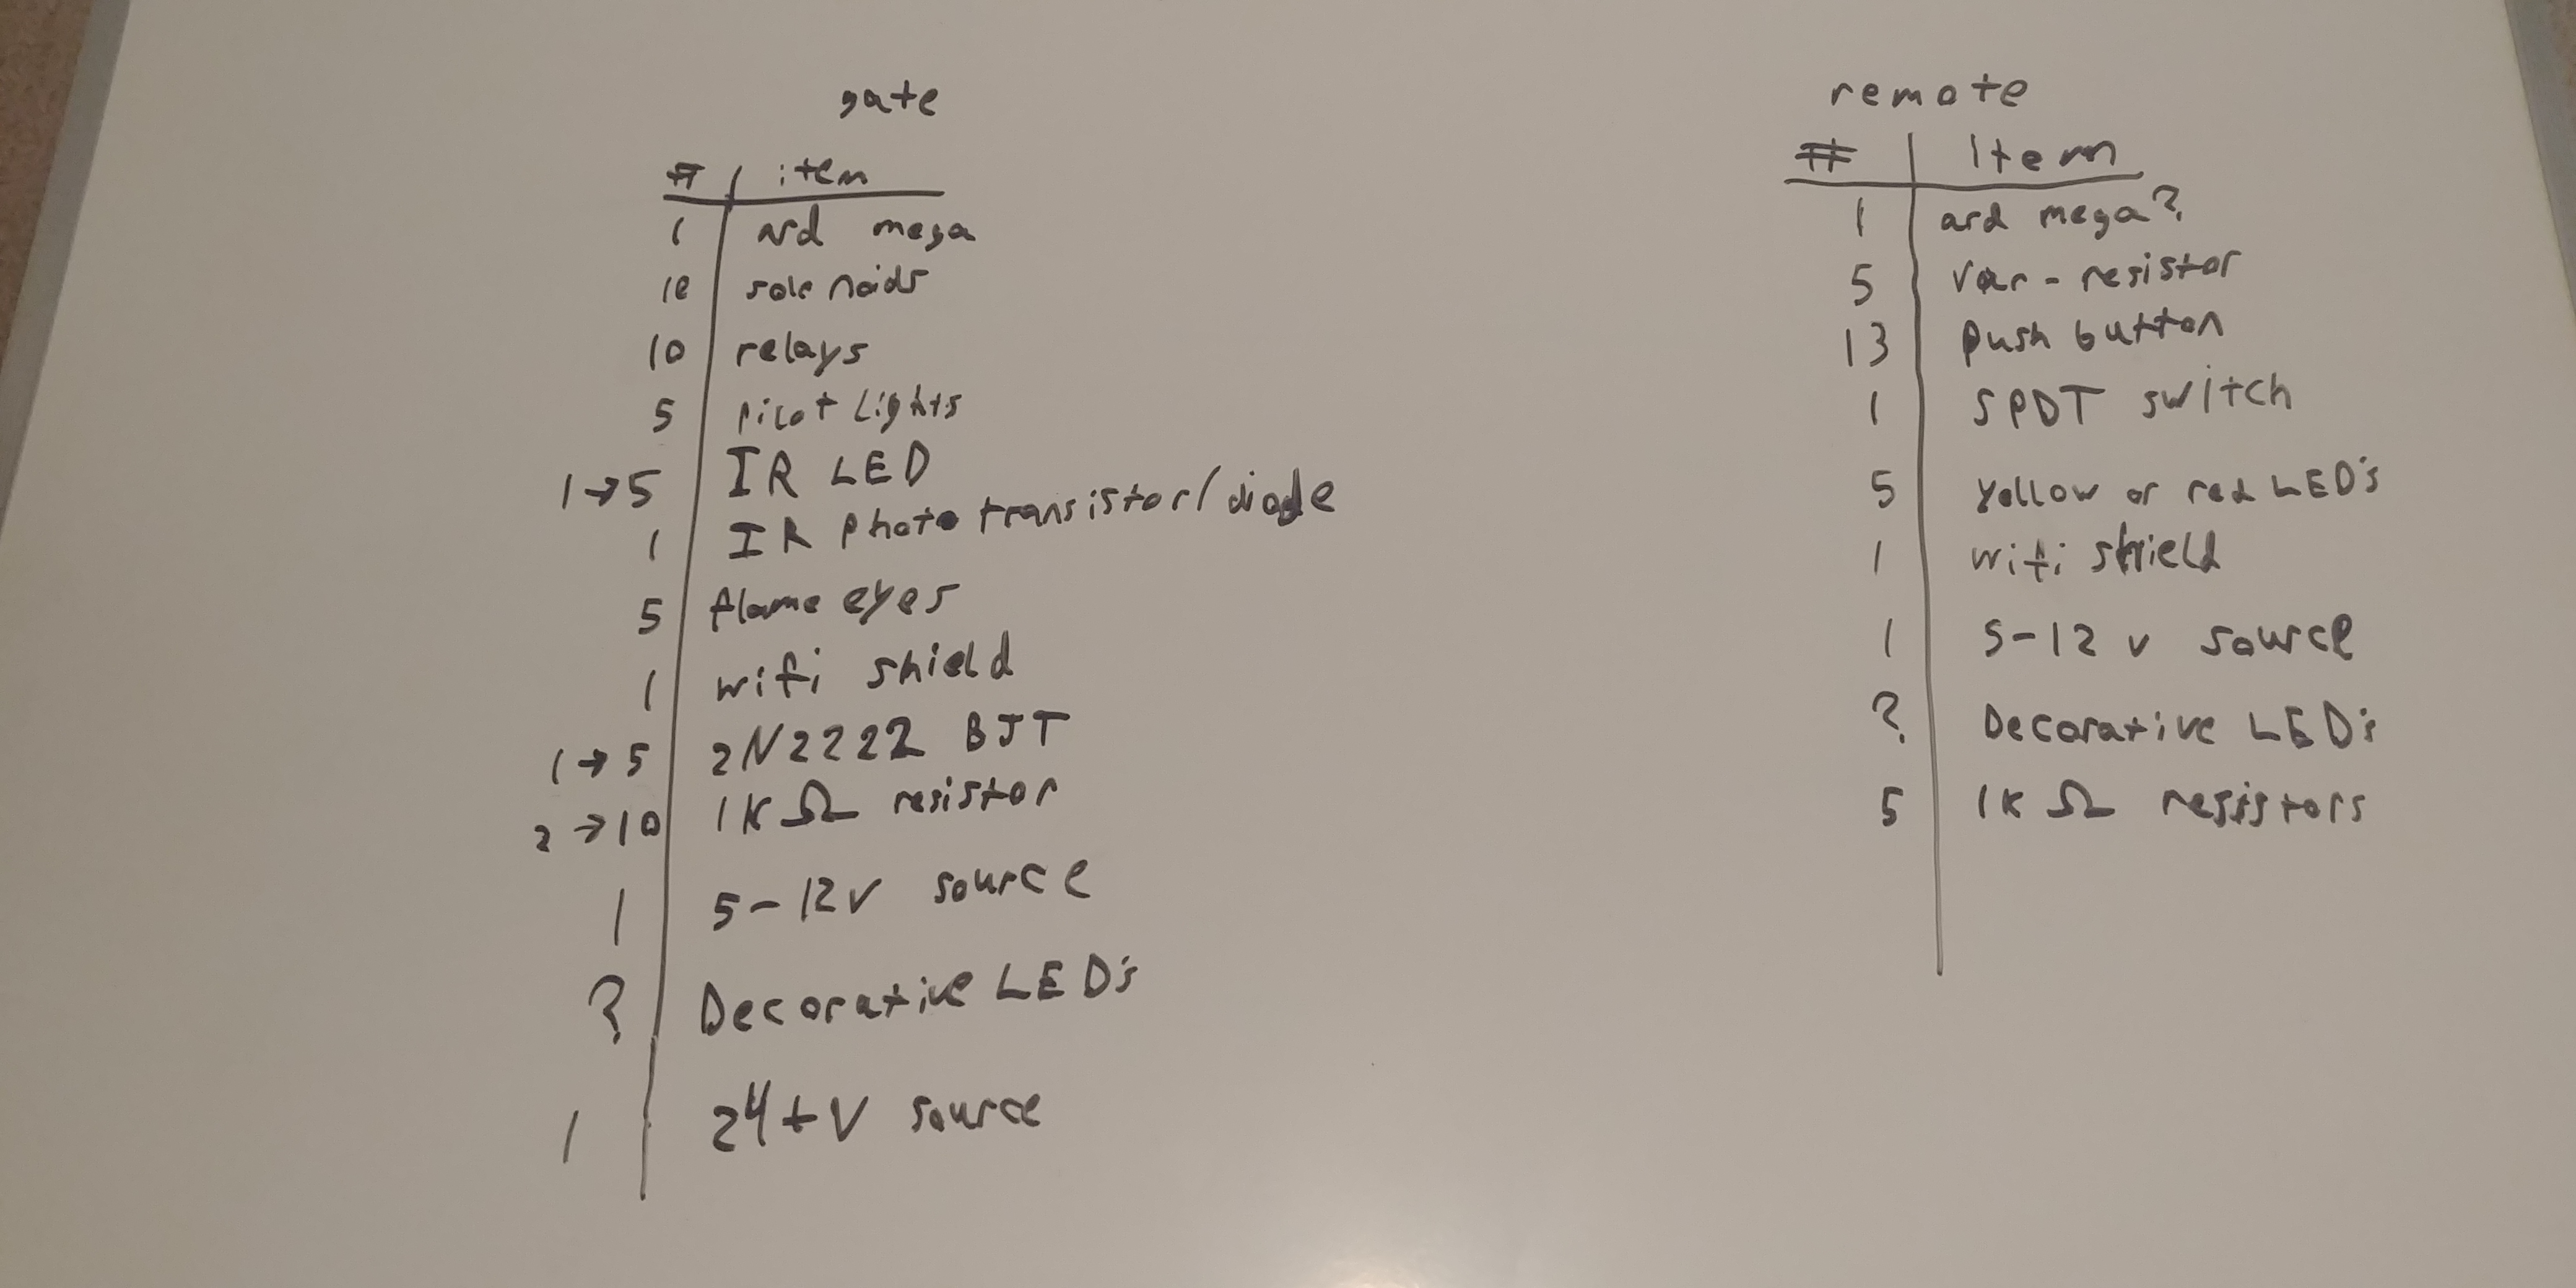 gate
# | item
1 | ard mega
10 | solenoids
10 | relays
5 | pilot Lights
1→5 | IR LED
1 | IR photo transistor/diode
5 | flame eyes
1 | wifi shield
1→5 | 2N2222 BJT
2→10 | 1K Ω resistor
1 | 5-12V source
? | Decorative LED's
1 | 24+V source
remote
# | Item
1 | ard mega?
5 | Var-resistor
13 | Push button
1 | SPDT switch
5 | Yellow or red LED's
1 | wifi shield
1 | 5-12 v source
? | Decorative LED's
5 | 1K Ω resistors